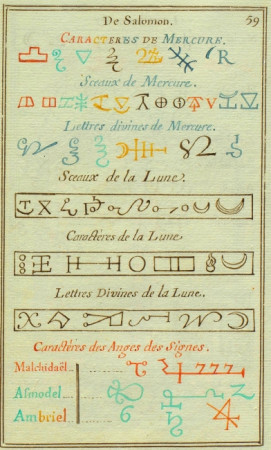 De Salomon. 59
CARACTERES DE MERCURE.
Sceaux de Mercure.
Lettres divines de Mercure.
Sceaux de la Lune.
Caractères de la Lune
Lettres Divines de la Lune.
Caractères des Anges des Signes.
Malchidaël...
Asmodel....
Ambriel